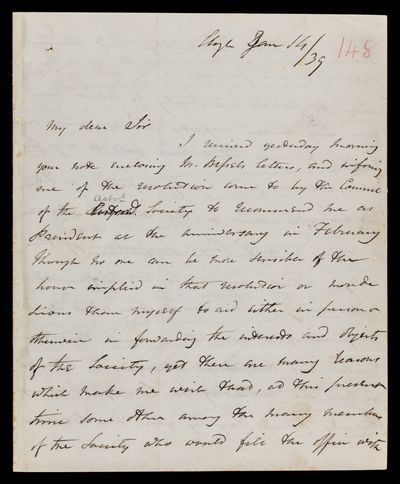 Slough Jan 14/39 148
My dear Sir
I received yesterday morning
your note enclosing Mr. Bessel's letters, and informing
me of the resolution come to by the Council
of the Astrl. Society to recommend me as
President at the anniversary in February
Though no one can be more sensible of the
honor implied in that resolution or more de
sirous than myself to aid either in person or
otherwise in forwarding the interests and objects
of the Society, yet there are many reasons
which make me wish that, at this present
time some other among the many members
of the Society who would fill the office with